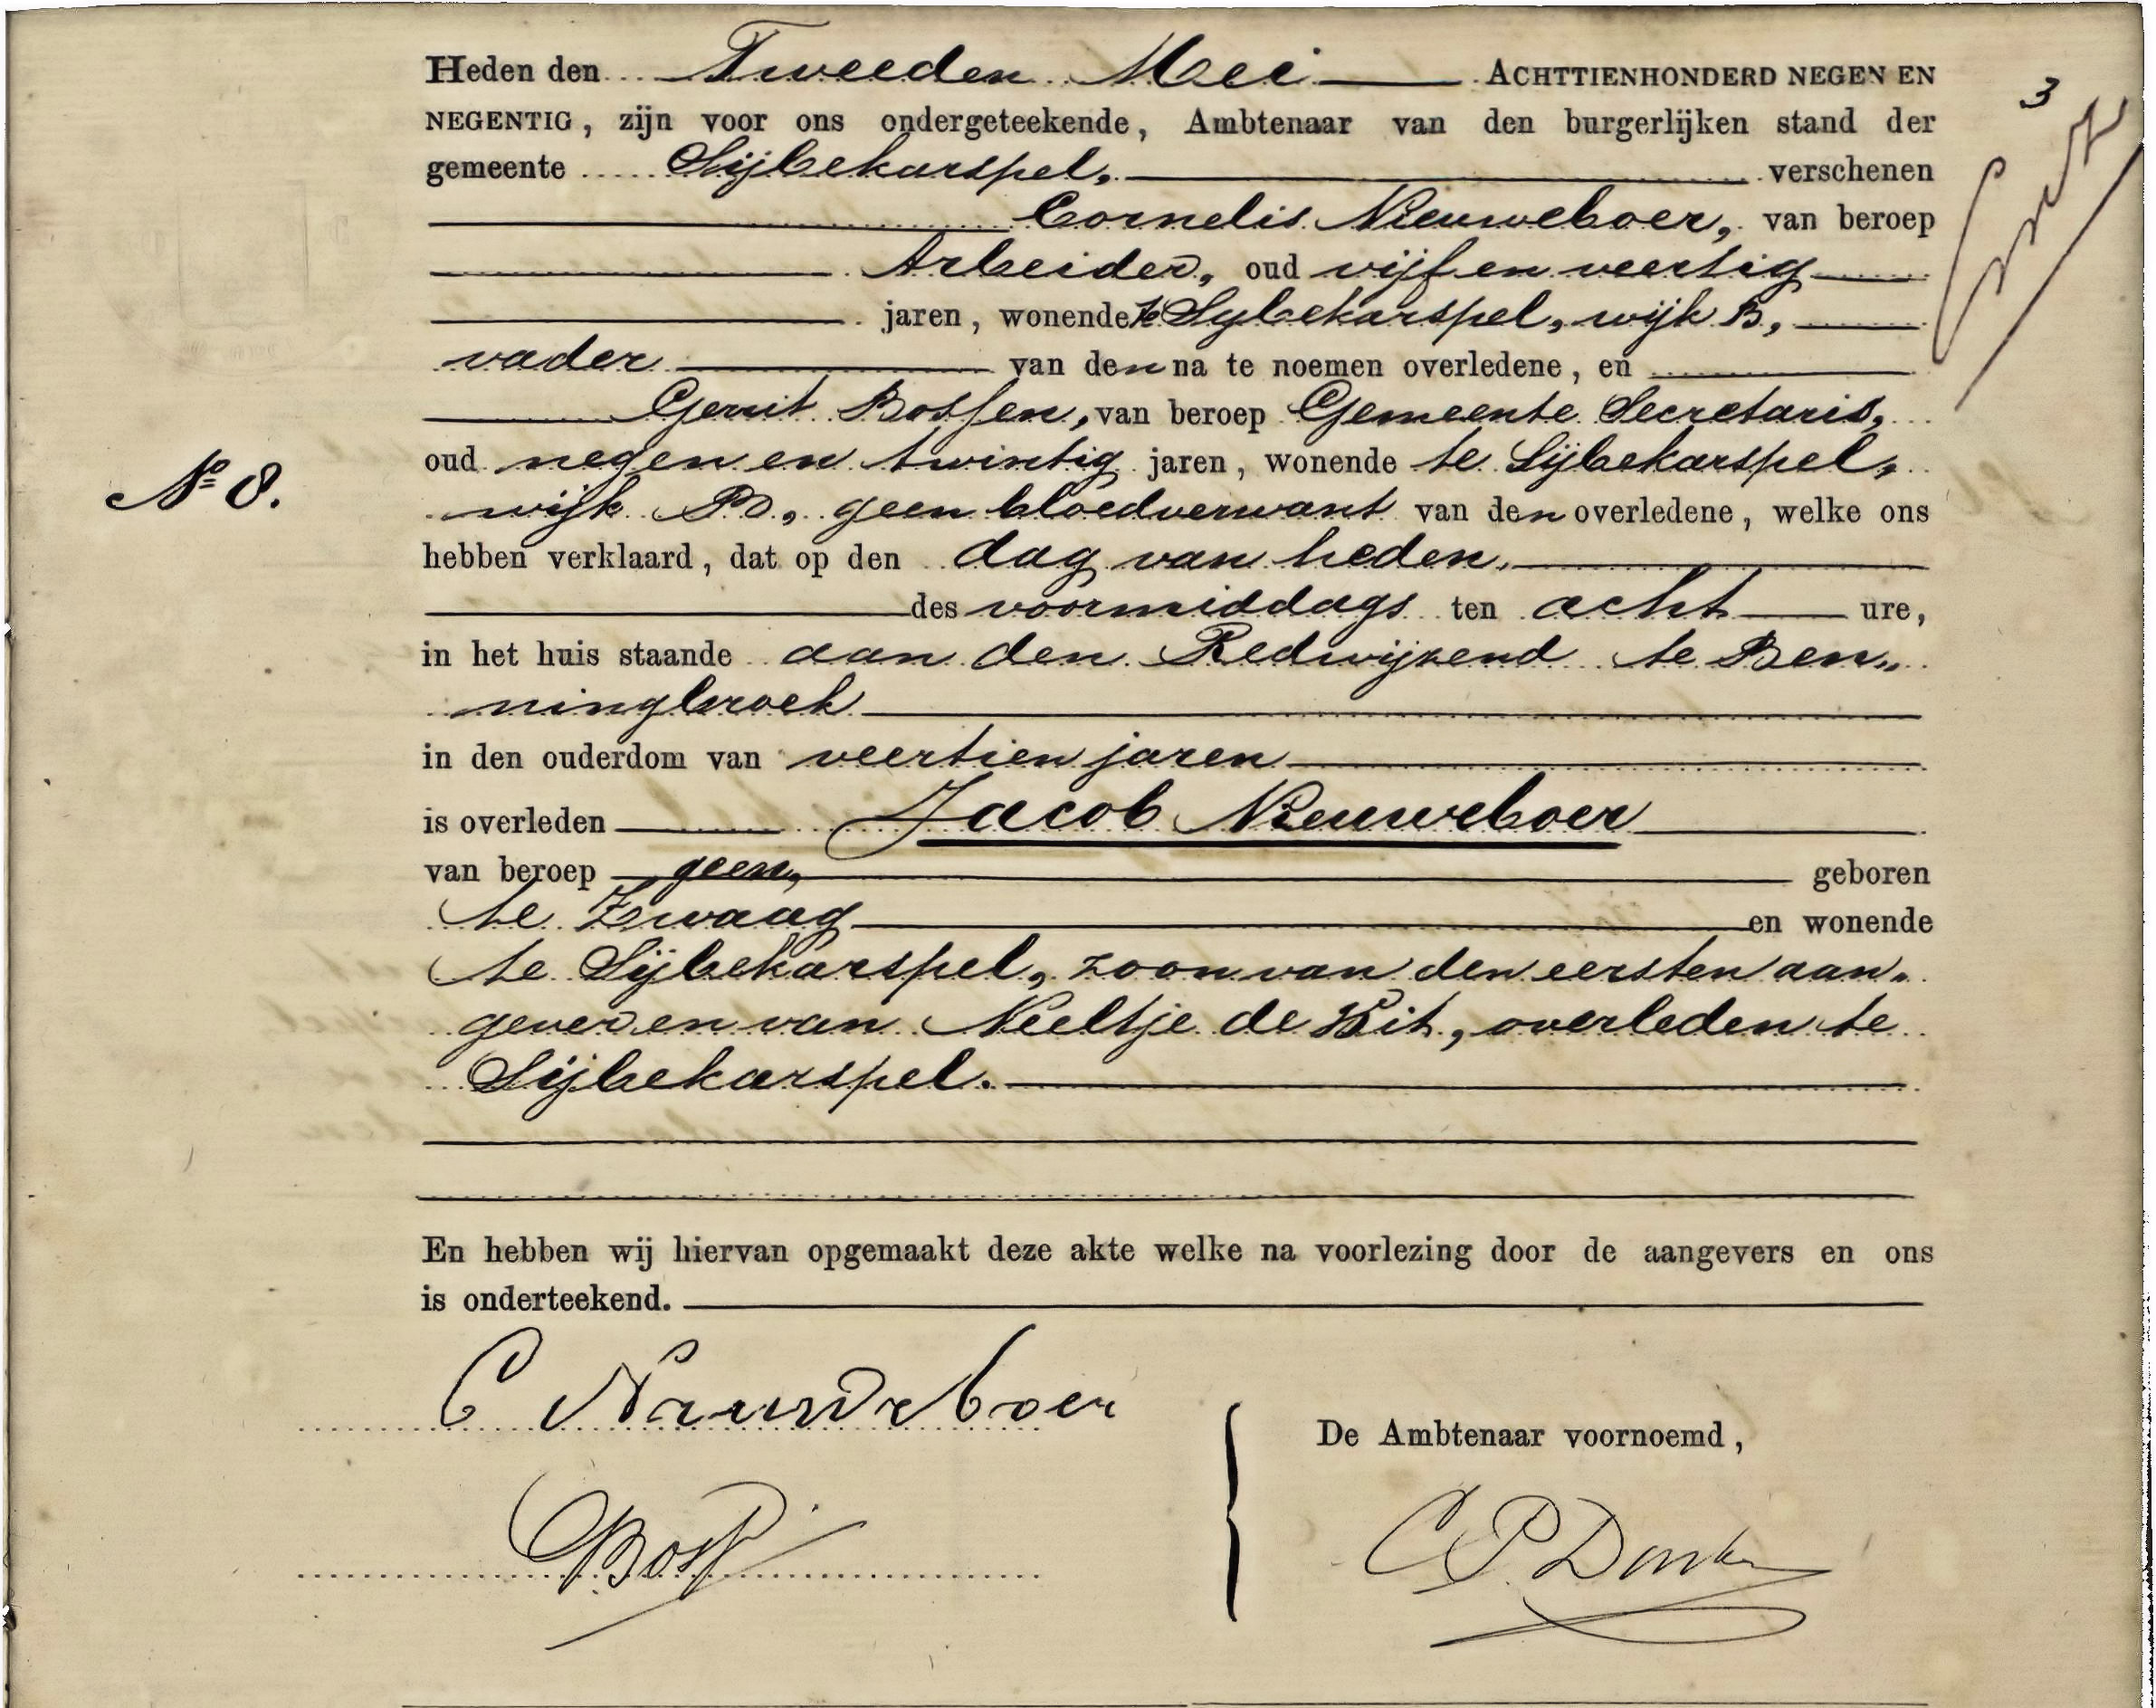 3
Heden den Tweeden Mei ACHTTIENHONDERD NEGEN EN
NEGENTIG, zijn voor ons ondergeteekende, Ambtenaar van den burgerlijken stand der
gemeente Sijbekarspel, verschenen
Cornelis Nieuweboer, van beroep
Arbeider, oud vijf en veertig
jaren, wonende te Sybekarspel, wijk B,
vader van den na te noemen overledene, en
Gerrit Bossen, van beroep Gemeente Secretaris,
oud negen en twintig jaren, wonende te Sijbekarspel,
No 8.
wijk B, geen bloedverwant van den overledene, welke ons
hebben verklaard, dat op den dag van heden,
des voormiddags ten acht ure,
in het huis staande aan den Redwijzend te Ben„
ningbroek
in den ouderdom van veertien jaren
is overleden Jacob Nieuweboer
van beroep geen, geboren
te Zwaag en wonende
te Sijbekarspel, zoon van den eersten aan„
gever en van Neeltje de Wit, overleden te
Sijbekarspel.
En hebben wij hiervan opgemaakt deze akte welke na voorlezing door de aangevers en ons
is onderteekend.
C Nieuweboer
De Ambtenaar voornoemd,
C P Donker